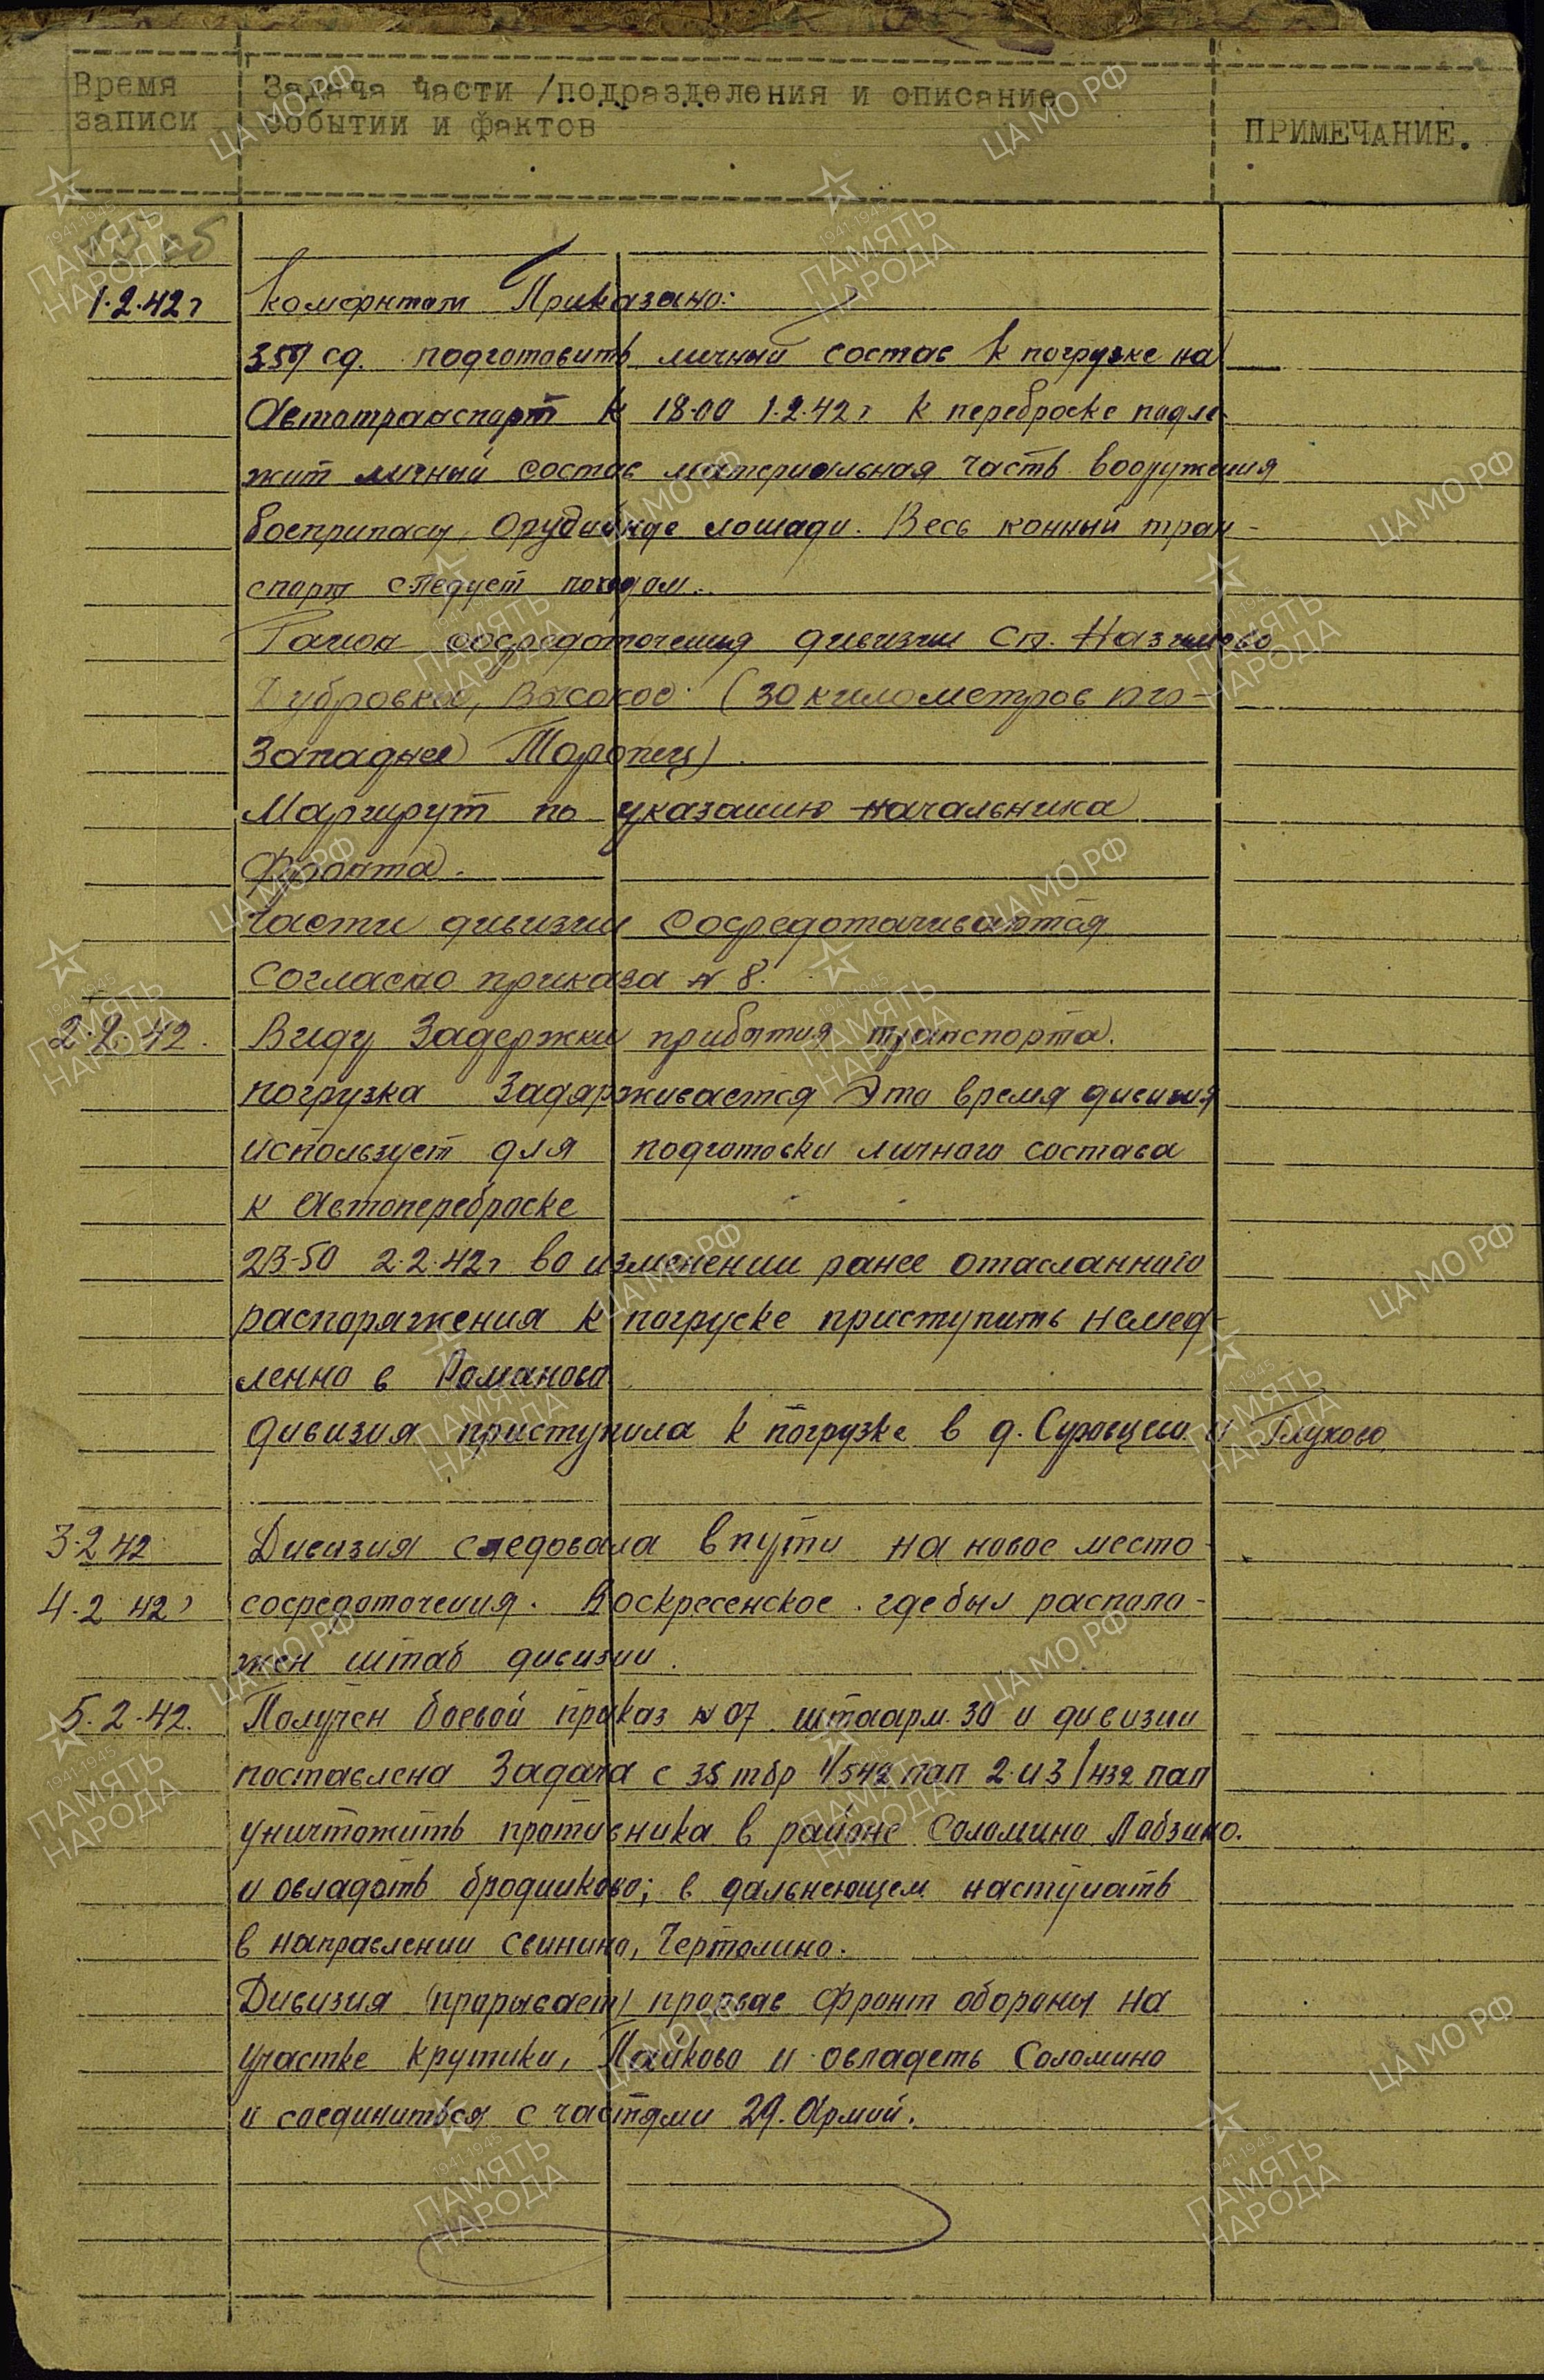 Время
записи
Задача части /подразделения и описание
событий и фактов
ПРИМЕЧАНИЕ.
1.2.42г
Приказано:
359 сд. подготовить личный состав к погрузке на
Автотранспорт к 18.00 1.2.42г к переброске подле-
жит личный состав материальная часть вооружения
боеприпасы, лошади. Весь конный тран-
спорт следует походом.
Район сосредоточения дивизии ст. Назимово
Дубровка, Высокое (30 километров юго-
Западнее Торопец)
Маршрут по указанию начальника
Фронта.
Части дивизии сосредотачиваются
Согласно приказа № 8.
2.2.42.
Виду Задержки прибытия транспорта.
погрузка Задярживается Это время дивизия
использует для подготовки личного состава
к Автопереброске
23-50 2.2.42г во изменении ранее отасланного
распоряжения к погруске приступить немед-
ленно в Романово
Дивизия приступила к погрузке в д. Суровцево и Глухово
3.2 42
Дивизия следовала в пути на новое место
4.2 42г
сосредоточения. Воскресенское. где был располо-
жен штаб дивизии.
5.2.42.
Получен боевой приказ № 07 штаарм. 30 и дивизии
поставлена Задача с 35 тбр 1/542 пап 2 и 3/432 пап
уничтожить противника в районе Соломино Лабзино.
и овладать бродниково; в дальнеющем наступать
в направлении Свинино, Чертолино.
Дивизия (прорывает) прорвав фронт обороны на
участке Крутики, Пайково и овладеть Соломино
и соединиться с частями 29. Армий.
ПАМЯТЬ НАРОДА
1941-1945
ЦА МО РФ